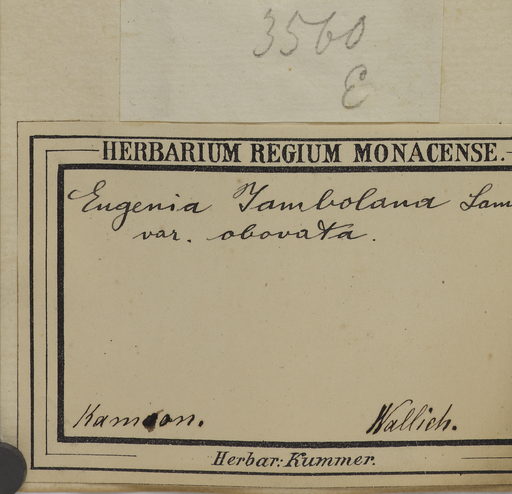 3560
E
HERBARIUM REGIUM MONACENSE.
Eugenia Jambolana Lam
var. obovata.
Kamoon. Wallich.
Herbar: Kummer.